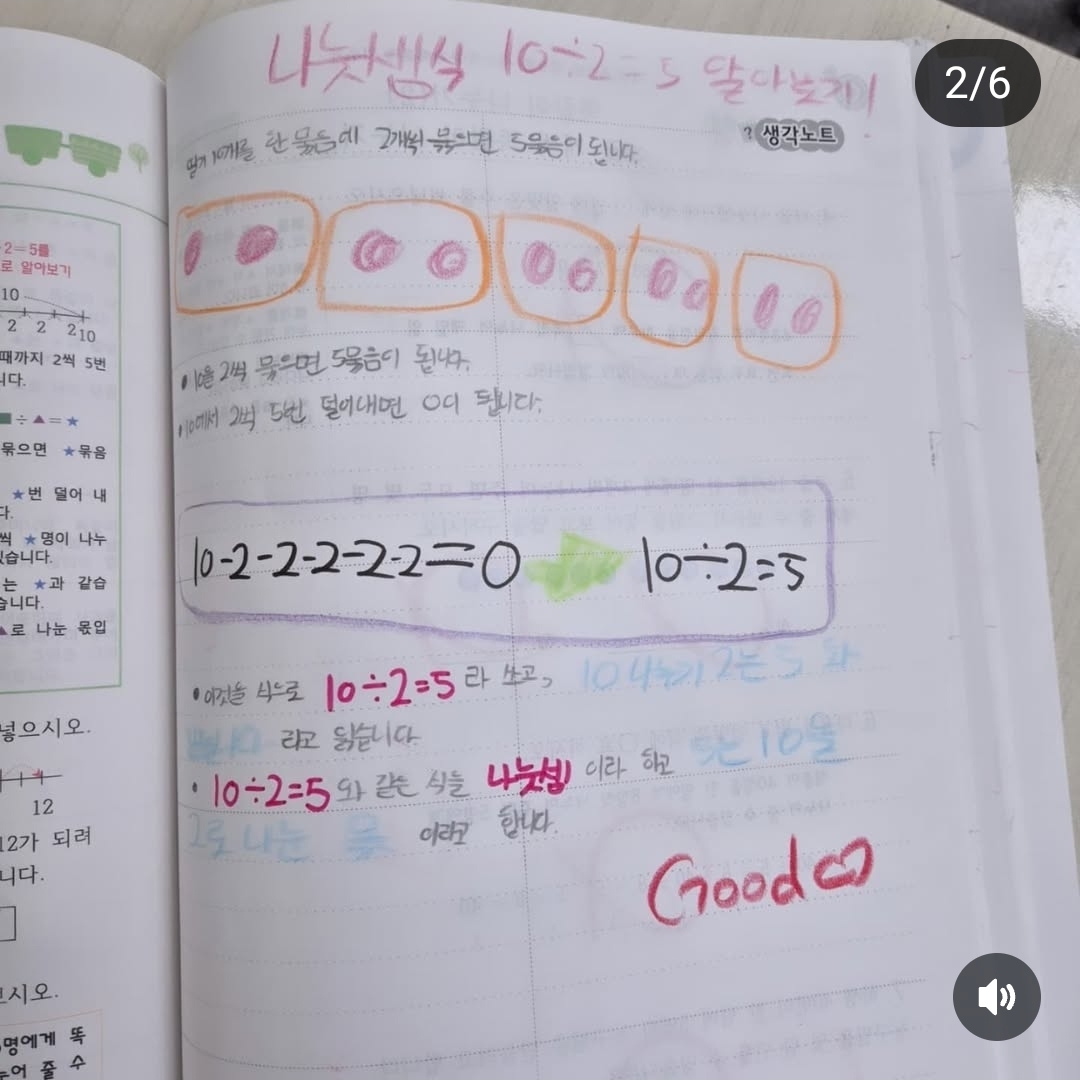 나눗셈식 10÷2=5 알아보기!
2/6
생각노트
딸기 10개를 한 묶음에 2개씩 묶으면 5묶음이 됩니다.
• 10을 2씩 묶으면 5묶음이 됩니다.
• 10에서 2씩 5번 덜어내면 0이 됩니다.
10-2-2-2-2-2=0 10÷2=5
• 이것을 식으로 10÷2=5 라 쓰고, 10 나누기 2는 5 와
같습니다 라고 읽습니다.
• 10÷2=5 와 같은 식을 나눗셈 이라 하고 5는 10을
2로 나눈 몫 이라고 합니다.
Good
2=5를
로 알아보기
10
2 2 2 10
때까지 2씩 5번
니다.
÷▲=★
묶으면 ★묶음
★번 덜어 내
다.
씩 ★명이 나누
있습니다.
는 ★과 같습
습니다.
▲로 나눈 몫입
넣으시오.
12
12가 되려
니다.
시오.
명에게 똑
누어 줄 수